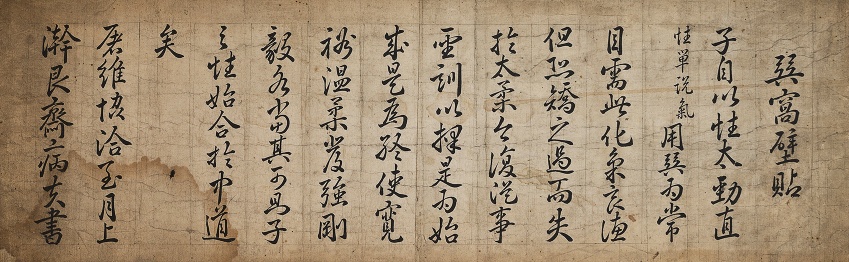 巽窩壁貼
子自以性太勁直
性單說氣 用巽為常
目需此化氣
但恐矯之過而失
於太柔今復從事
聖訓以擇是為始
成是為終使寬
裕溫柔發強剛
毅各當其可焉子
之性始合於中道
矣
屠維協洽至月上
澣艮齋病夫書